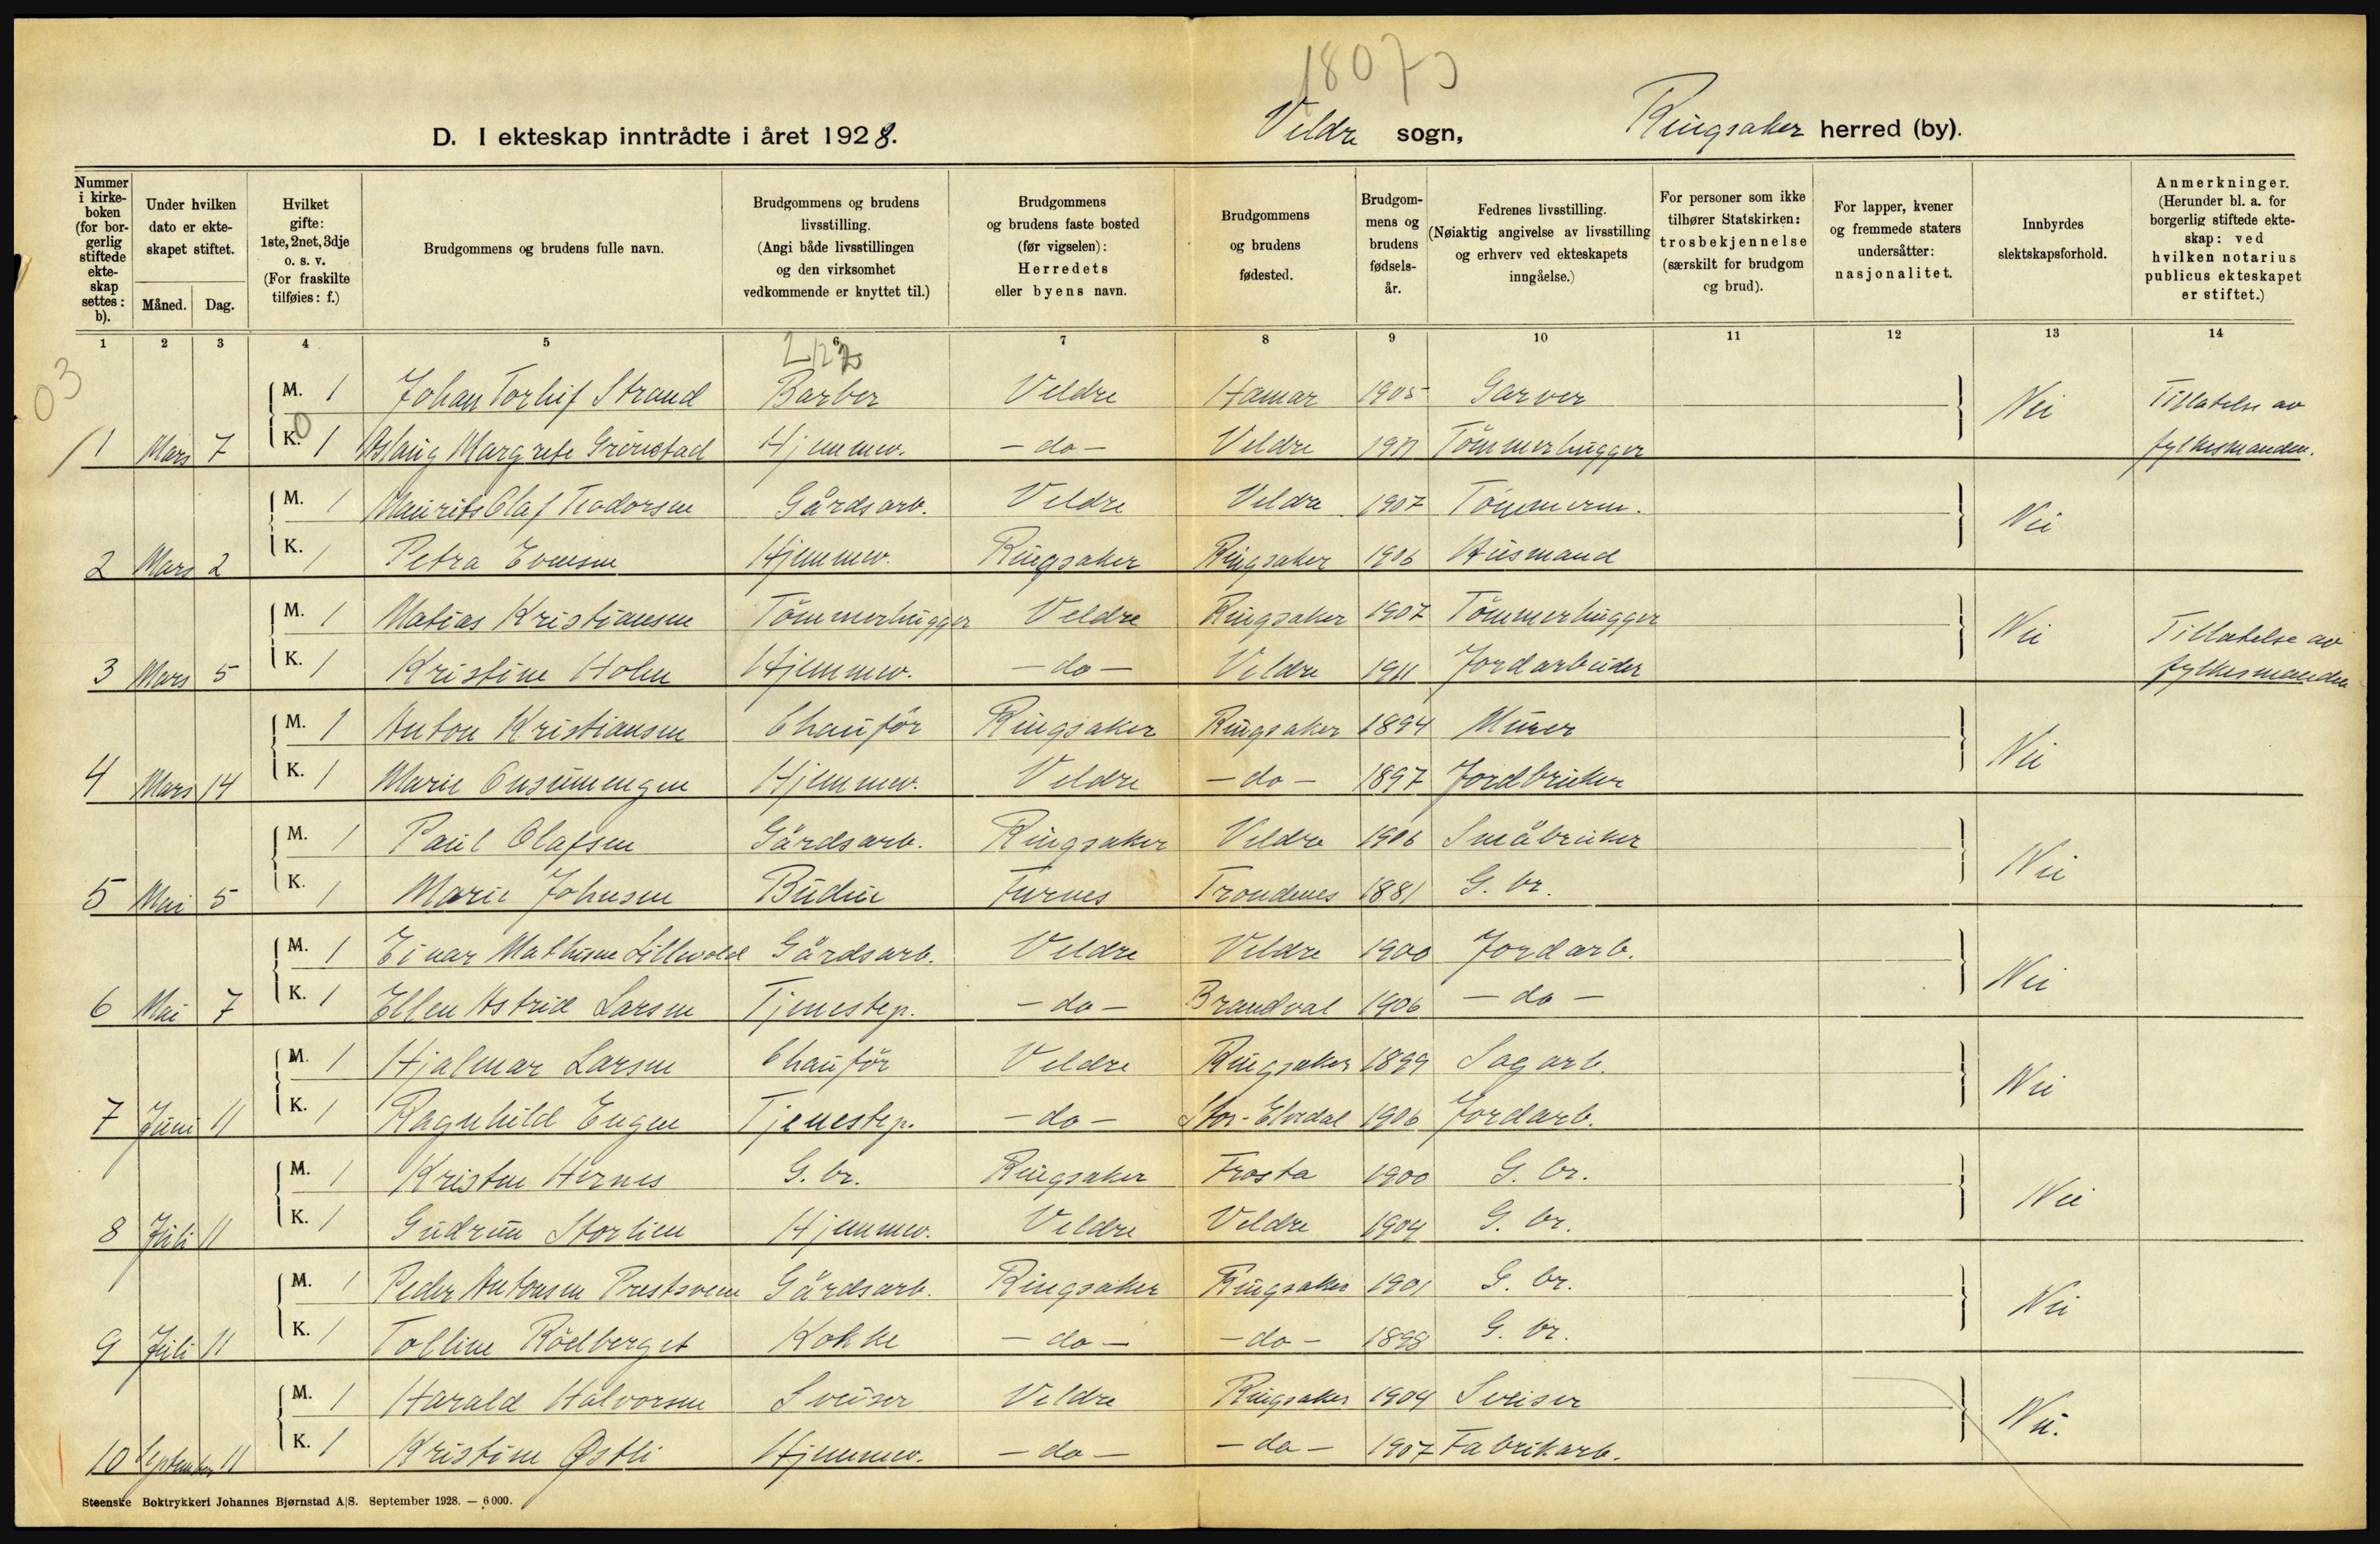 1807
D. I ekteskap inntrådte i året 1928.
Veldre sogn,
Ringsaker herred (by).
Nummer i kirkeboken (for borgerlig stiftede ekteskap settes: b).
Under hvilken dato er ekteskapet stiftet.
Måned. Dag.
Hvilket gifte: 1ste, 2net, 3dje o. s. v. (For fraskilte tilføies: f.)
Brudgommens og brudens fulle navn.
Brudgommens og brudens livsstilling. (Angi både livsstillingen og den virksomhet vedkommende er knyttet til.)
Brudgommens og brudens faste bosted (før vigselen): Herredets eller byens navn.
Brudgommens og brudens fødested.
Brudgommens og brudens fødselsår.
Fedrenes livsstilling. (Nøiaktig angivelse av livsstilling og erhverv ved ekteskapets inngåelse.)
For personer som ikke tilhører Statskirken: trosbekjennelse (særskilt for brudgom og brud).
For lapper, kvener og fremmede staters undersåtter: nasjonalitet.
Innbyrdes slektskapsforhold.
Anmerkninger. (Herunder bl. a. for borgerlig stiftede ekteskap: ved hvilken notarius publicus ekteskapet er stiftet.)
1 2 3 4 5 6 7 8 9 10 11 12 13 14
03
M. 1 Johan Torleif Strand Barber Veldre Hamar 1905 Garver Nei Tillatelse av
1 Mars 7 K. 1 Aslaug Margrete Grönstad Hjemmev. - do - Veldre 1911 Tömmerhugger fylkesmanden.
M. 1 Maurits Olaf Teodorsen Gårdsarb. Veldre Veldre 1907 Tömmerm. Nei
2 Mars 2 K. 1 Petra Evensen Hjemmev. Ringsaker Ringsaker 1906 Husmand
M. 1 Matias Kristiansen Tömmerhugger Veldre Ringsaker 1907 Tömmerhugger Nei Tillatelse av
3 Mars 5 K. 1 Kristine Holen Hjemmev. - do - Veldre 1911 Jordarbeider fylkesmanden
M. 1 Anton Kristiansen Chauför Ringsaker Ringsaker 1894 Murer Nei
4 Mars 14 K. 1 Marie Onsumengen Hjemmev. Veldre - do - 1897 Jordbruker
M. 1 Paul Olafsen Gårdsarb. Ringsaker Veldre 1906 Småbruker Nei
5 Mai 5 K. 1 Marie Johnsen Budeie Furnes Trondenes 1881 G. br.
M. 1 Einar Mathisen Lillevold Gårdsarb. Veldre Veldre 1900 Jordarb. Nei
6 Mai 7 K. 1 Ellen Astrid Larsen Tjenestep. - do - Brandval 1906 - do -
M. 1 Hjalmar Larsen Chauför Veldre Ringsaker 1899 Sagarb. Nei
7 Juni 11 K. 1 Ragnhild Engen Tjenestep. - do - Stor-Elvedal 1906 Jordarb.
M. 1 Kristen Hernes G. br. Ringsaker Frosta 1900 G. br. Nei
8 Juli 11 K. 1 Gudrun Storlien Hjemmev. Veldre Veldre 1904 G. br.
M. 1 Peder Antonsen Prestsveen Gårdsarb. Ringsaker Ringsaker 1901 G. br. Nei
9 Juli 11 K. 1 Tolline Röelberget Kokke - do - - do - 1898 G. br.
M. 1 Harald Halvorsen Sveiser Veldre Ringsaker 1904 Sveiser Nei.
10 September 11 K. 1 Kristine Østli Hjemmev. - do - - do - 1907 Fabrikarb.
Steenske Boktrykkeri Johannes Bjørnstad A/S. September 1928. — 6000.